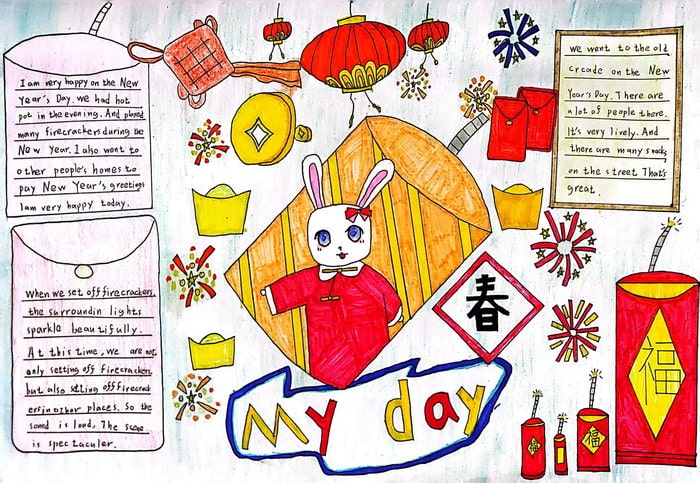 I am very happy on the New
Year's Day. We had hot
pot in the evening. And played
many firecrackers during the
New Year. I also went to
other people's homes to
pay New Year's greetings
I am very happy today.
When we set off firecrackers,
the surroundin lights
sparkle beautifully.
At this time, we are not
only setting off firecrackers,
but also setting off firecrack
ers in other places. So the
sound is loud, The scene
is spectaculer.
we went to the old
crcade on the New
Year's Day. There are
a lot of people there.
It's very lively. And
there are many snacks
on the street That's
great.
春
福
福
福
My day